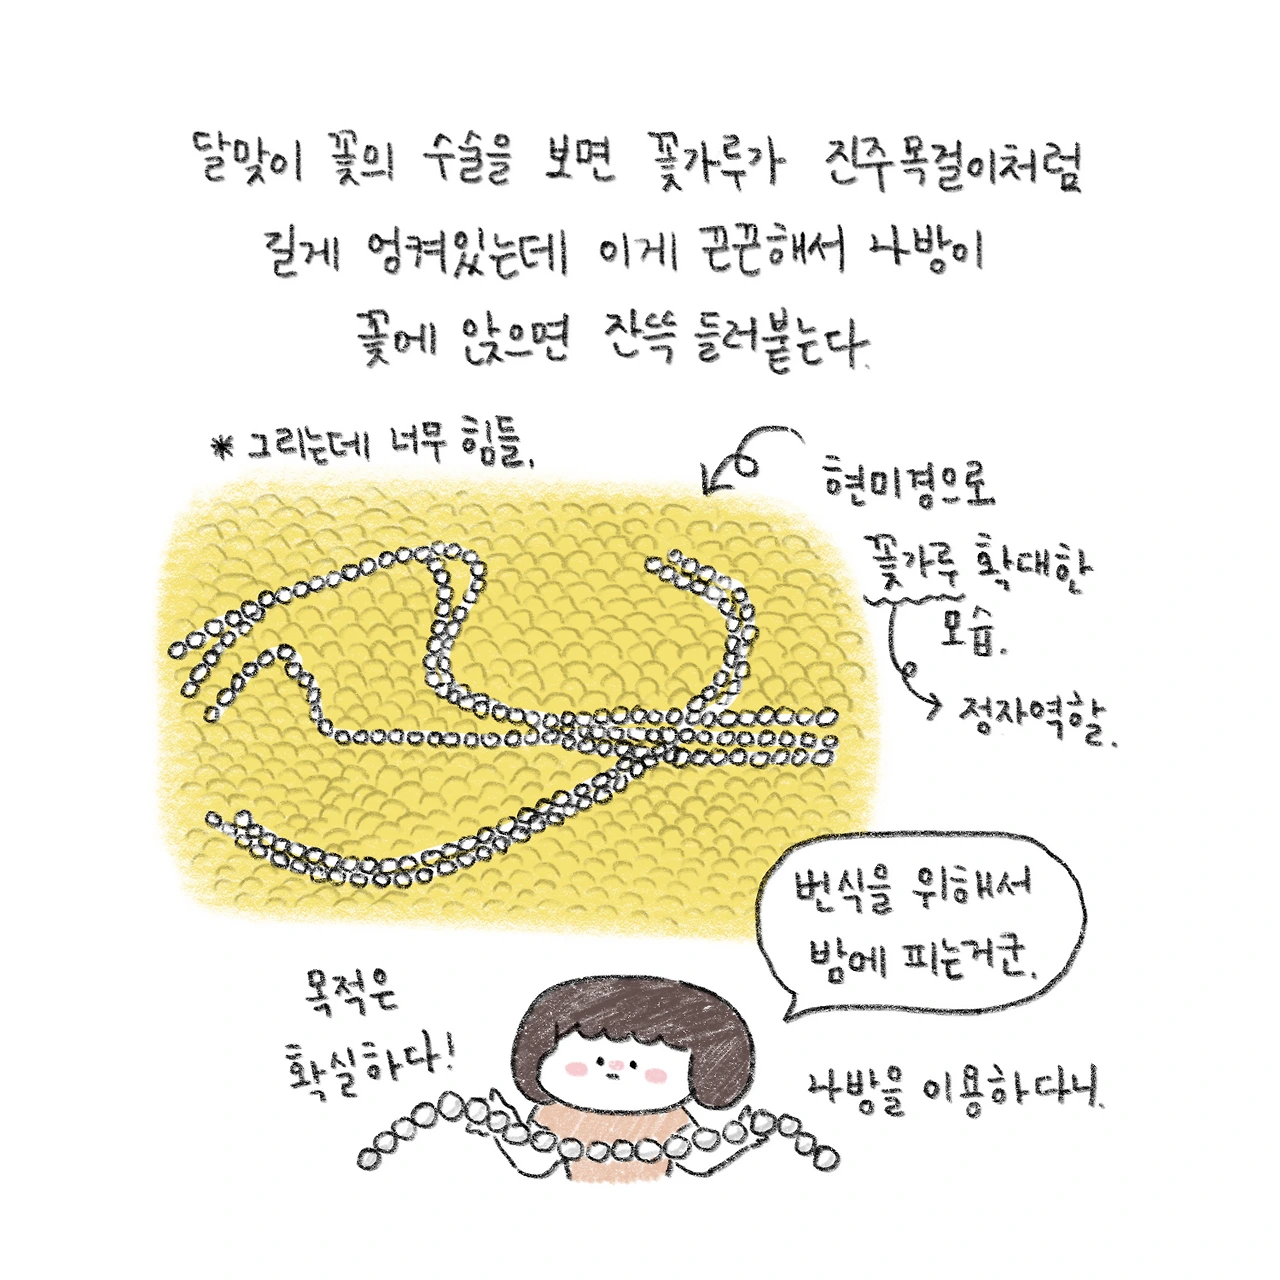 달맞이 꽃의 수술을 보면 꽃가루가 진주목걸이처럼
길게 엉켜있는데 이게 끈끈해서 나방이
꽃에 앉으면 잔뜩 들러붙는다.
* 그리는데 너무 힘듦.
현미경으로
꽃가루 확대한
모습.
정자역할.
번식을 위해서
밤에 피는거군.
목적은
확실하다!
나방을 이용하다니.